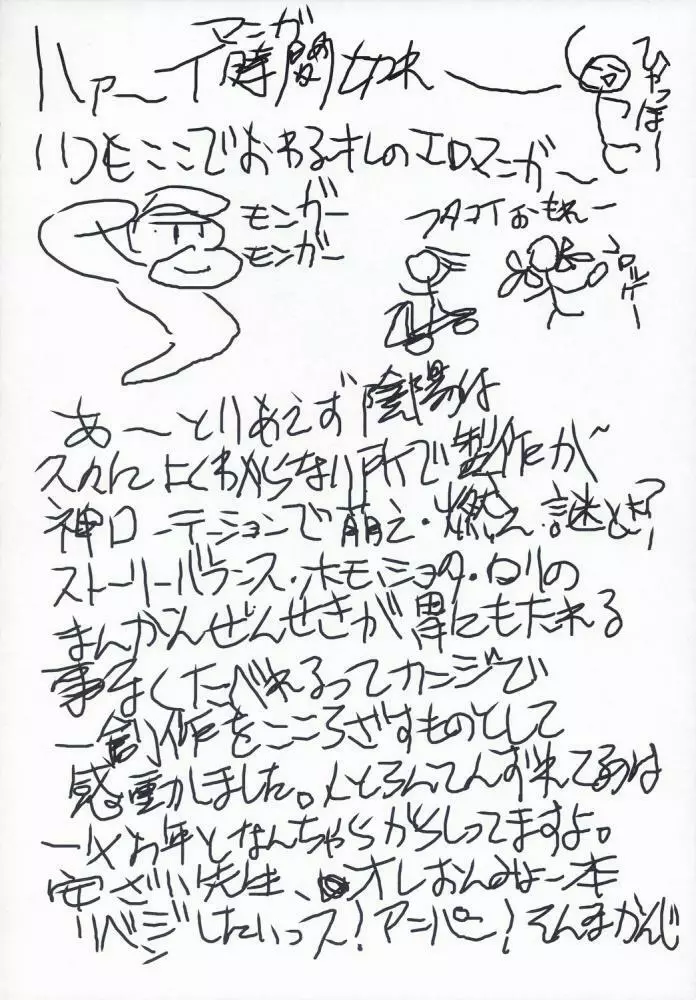 マニガ
ハァーイ 時間 だよ〜
ひゃっほー
いつもここでおわるオレのエロマニガ〜
モンガー
モンガー
フタコイおもれー
あーとりあえず陰陽は
久々によくわからない所で製作が
神ローテーションで萌え・燃え・謎とき?
ストーリーバランス・ホモ・ショタ・ロリの
まんかんぜんせきが胃にもたれる
事なくたべれるってカンジで
一創作をこころざすものとして
感動しました。
お年となんちゃらがらしってますよ。
安ざい先生、オレおんみょー本
リベンジしたいっス!アニパー!そんまかんじ